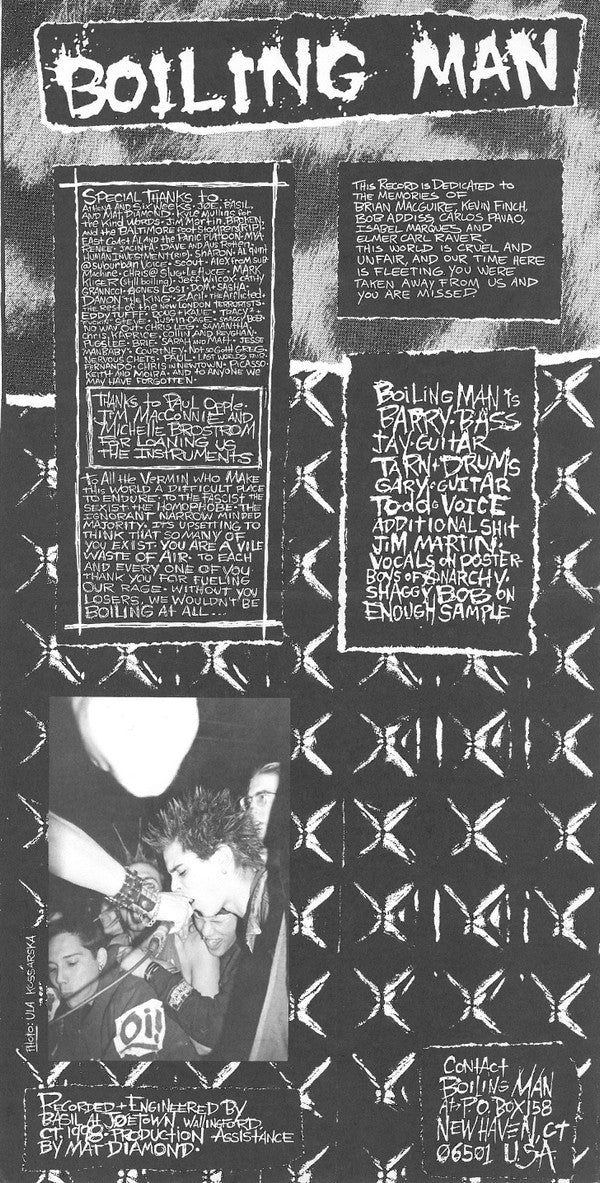 BOILING MAN
SPECIAL THANKS to..
ATHENA AND SIX WEEKS · JOE, BASIL,
AND MAT DIAMOND · KYLE MULLINS for
the KIND WORDS · JIM MARTIN, BROKEN,
and the BALTIMORE footstompers (RIP)
EAST COAST AL AND the PANIC PLATOON · MYA
RENEE · JACINTA · DAVE AND AUS ROTTEN,
HUMAN INVESTMENT (RIP) · SHARON · AL QUINT
@ SUBURBAN VOICE · SCOTT + ALEX FROM SUB
MACHINE · CHRIS @ SLUG + LETTUCE · MARK
KLIGER (Still boiling) · JEFF WILCOX, CATHY
AGNES LOST · DOM + SASHA ·
DAMON the KING · ZACH · the AFFLICTED,
the rest of the NEW LONDON TERRORISTS ·
EDDY TUFFE · DOUG + KALIE · TRACY 2 +
JUSTIN CASE · SHAGGY BOB
NO WAY OUT · CHRIS LEG · SAMANTHA,
CHRIS PATRICE, COLIN AND KEVGHAN,
PUGSLEE · BRIE · SARAH and MATT · JESSE
MANBABY · COURTNEY · NOT SO GH GREG,
NERVOUS CHETS · PAUL · LAST WORLDS FAIR
FERNANDO · CHRIS IN NEWTOWN · PICASSO,
KEITH AND MOIRA · AND to ANYONE WE
MAY HAVE FORGOTTEN ·
THANKS to PAUL OPPLE,
JIM MACCONNIE AND
MICHELLE BROSTROM
FOR LOANING US
THE INSTRUMENTS
to All the VERMIN WHO MAKE
THIS WORLD A DIFFICULT PLACE
TO ENDURE · TO THE FASCIST THE
SEXIST THE HOMOPHOBE · THE
IGNORANT NARROW MINDED
MAJORITY. ITS UPSETTING TO
THINK THAT SO MANY OF
YOU EXIST. YOU ARE A VILE
WASTE OF AIR. TO EACH
AND EVERY ONE OF YOU
THANK YOU FOR FUELING
OUR RAGE · WITHOUT YOU
LOSERS, WE WOULDN'T BE
BOILING AT ALL...
THIS RECORD IS DEDICATED TO
THE MEMORIES OF
BRIAN MACGUIRE, KEVIN FINCH,
BOB ADDISS, CARLOS PAVAO,
ISABEL MARQUES AND
ELMER CARL RAVER
THIS WORLD IS CRUEL AND
UNFAIR, AND OUR TIME HERE
IS FLEETING YOU WERE
TAKEN AWAY FROM US AND
YOU ARE MISSED
BOILING MAN IS
BARRY · BASS
JAY · GUITAR
TARN · DRUMS
GARY · GUITAR
TODD · VOICE
ADDITIONAL SHIT
JIM MARTIN ·
VOCALS ON POSTER-
BOYS OF ANARCHY ·
SHAGGY BOB ON
ENOUGH SAMPLE
PHOTO: ULA KOSSARSKA
Oi!
RECORDED + ENGINEERED BY
BASIL AT JOETOWN WALLINGFORD,
CT. 1998 · PRODUCTION ASSISTANCE
BY MAT DIAMOND ·
CONTACT
BOILING MAN
AT P.O. BOX 158
NEW HAVEN, CT
06501 U.S.A